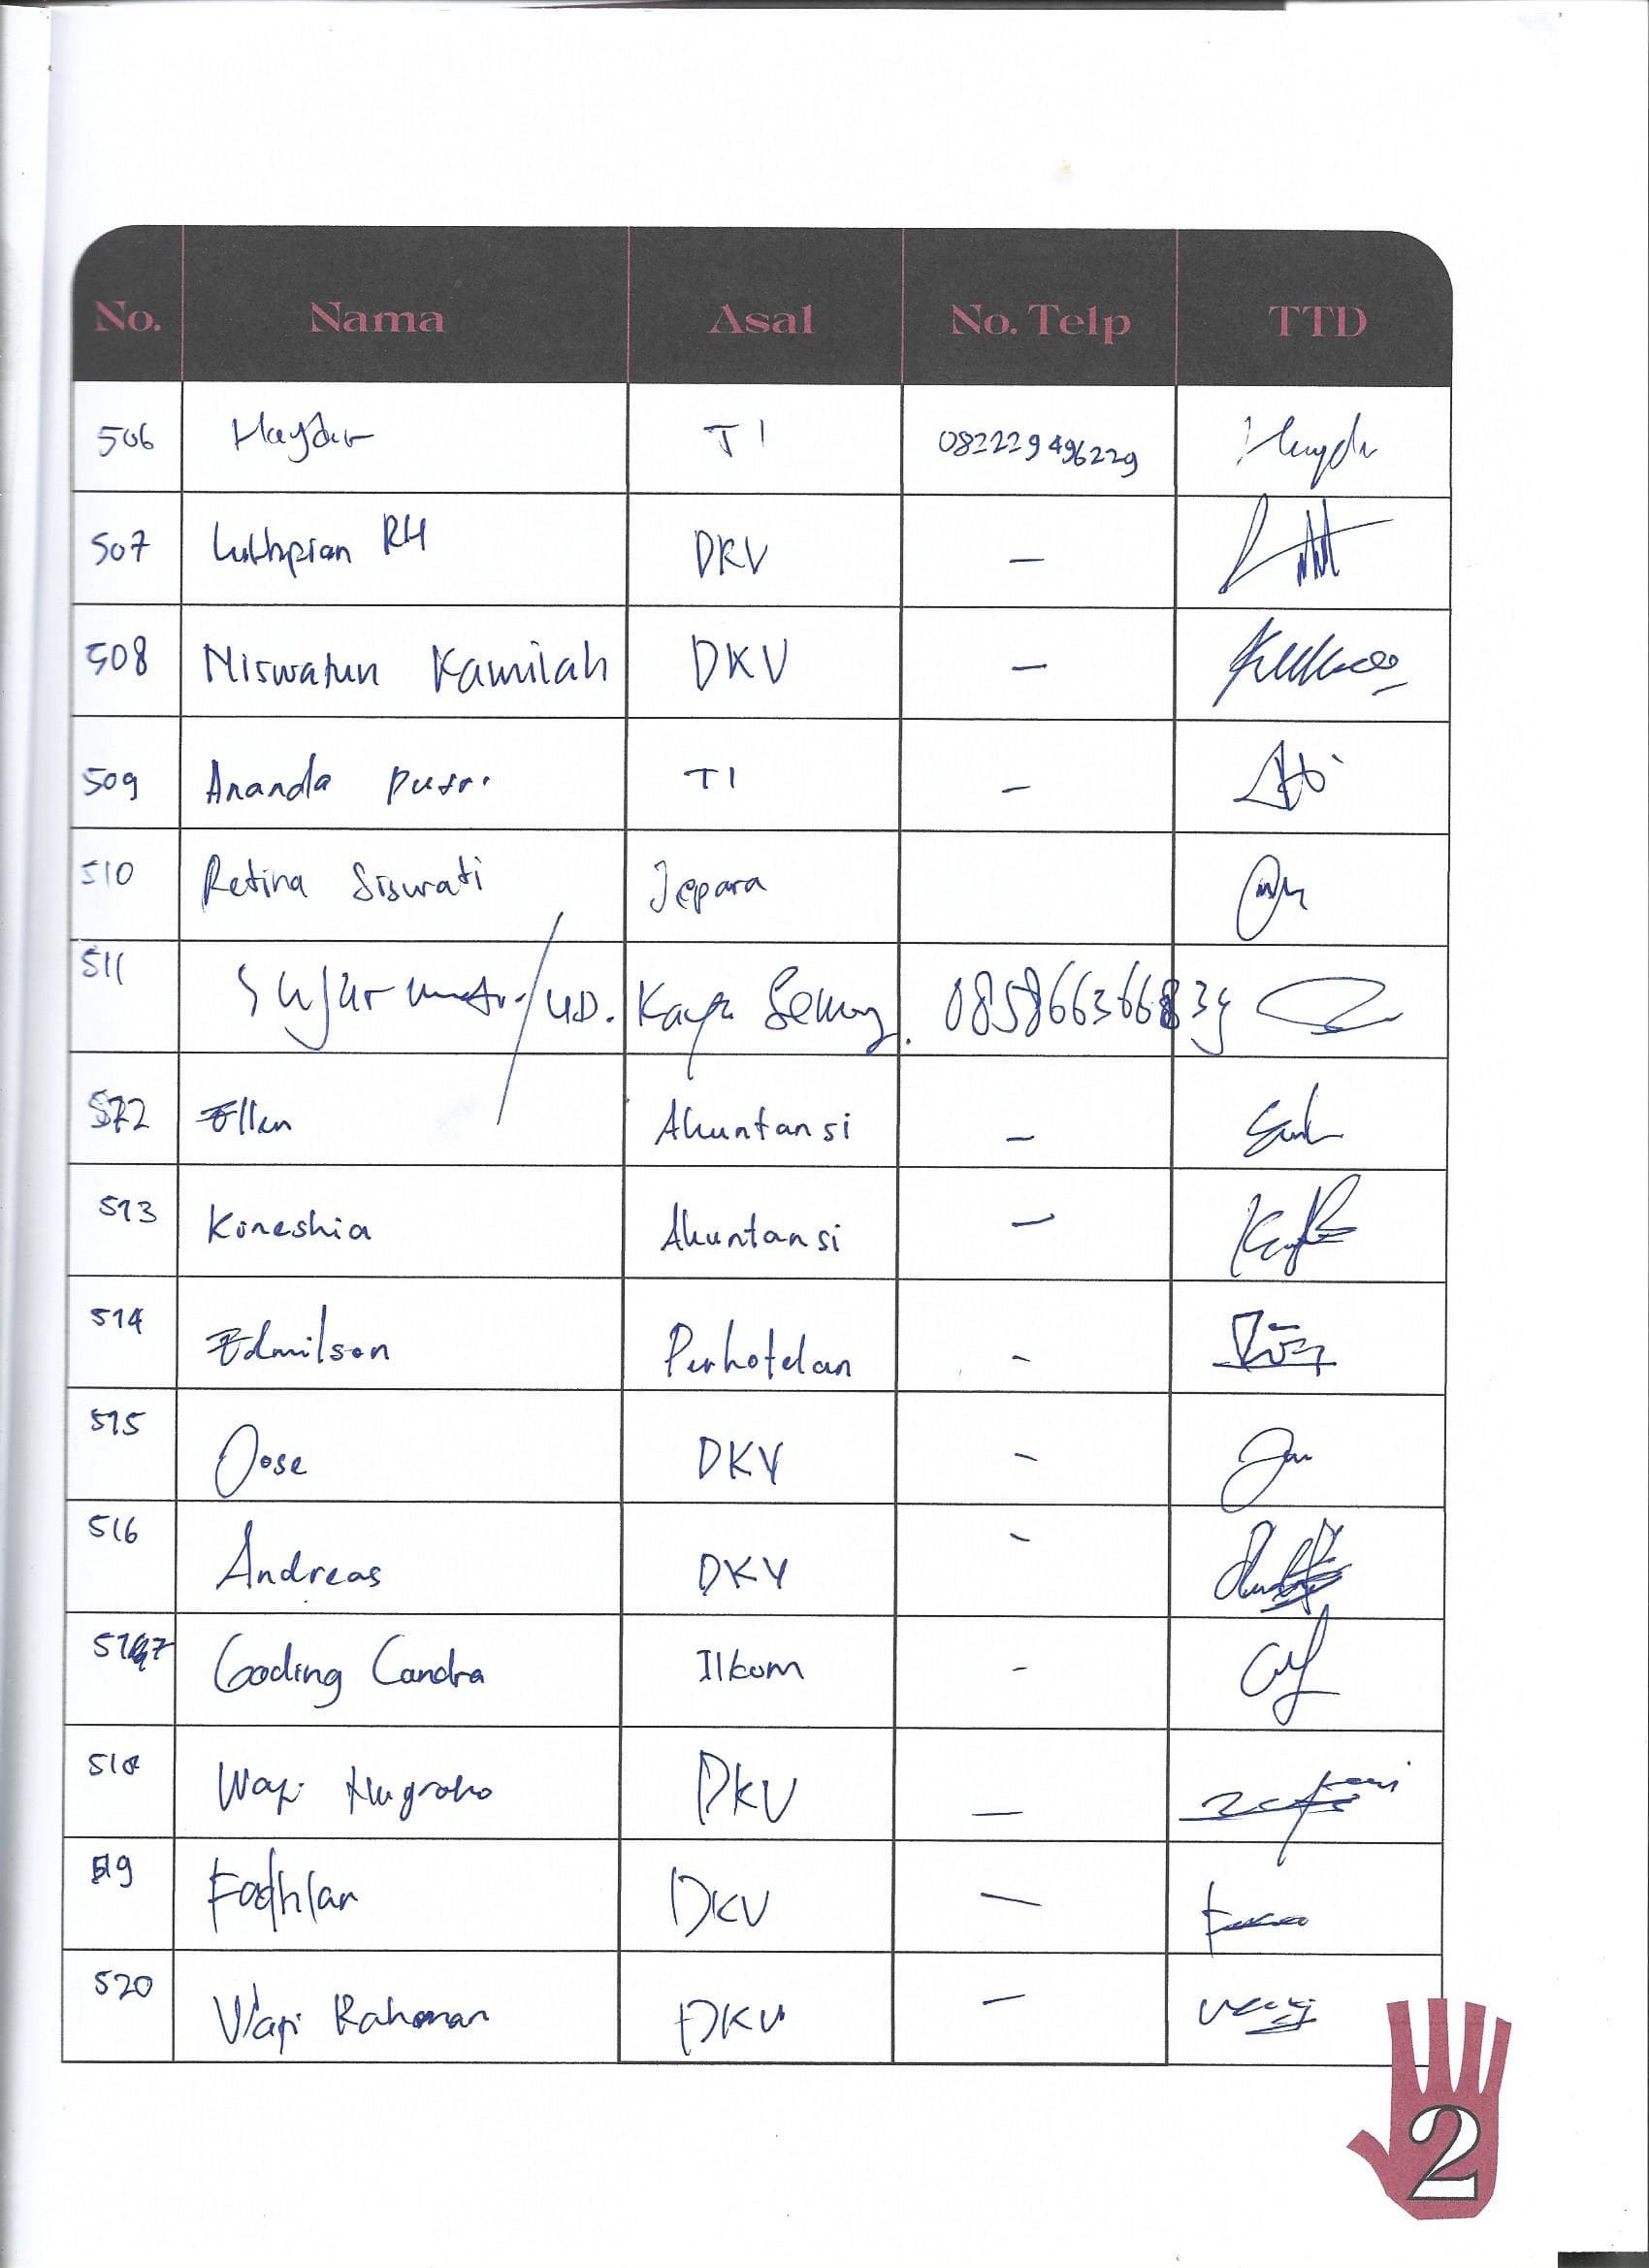 No. Nama Asal No. Telp TTD
506 Haydar TI 082229496229
507 Luthpian RH DKV —
508 Niswatun Kamilah DKV —
509 Ananda putri TI —
510 Retina Siswati Jepara
511 UD. Kaya 085866366839
512 Ellen Akuntansi —
513 Koneshia Akuntansi —
514 Edmilson Perhotelan -
515 Jose DKV -
516 Andreas DKV -
517 Gading Candra Ilkom -
518 Wapi Nugroho DKV —
519 Fadhlan DKV —
520 Wapi Rahman DKV —
2